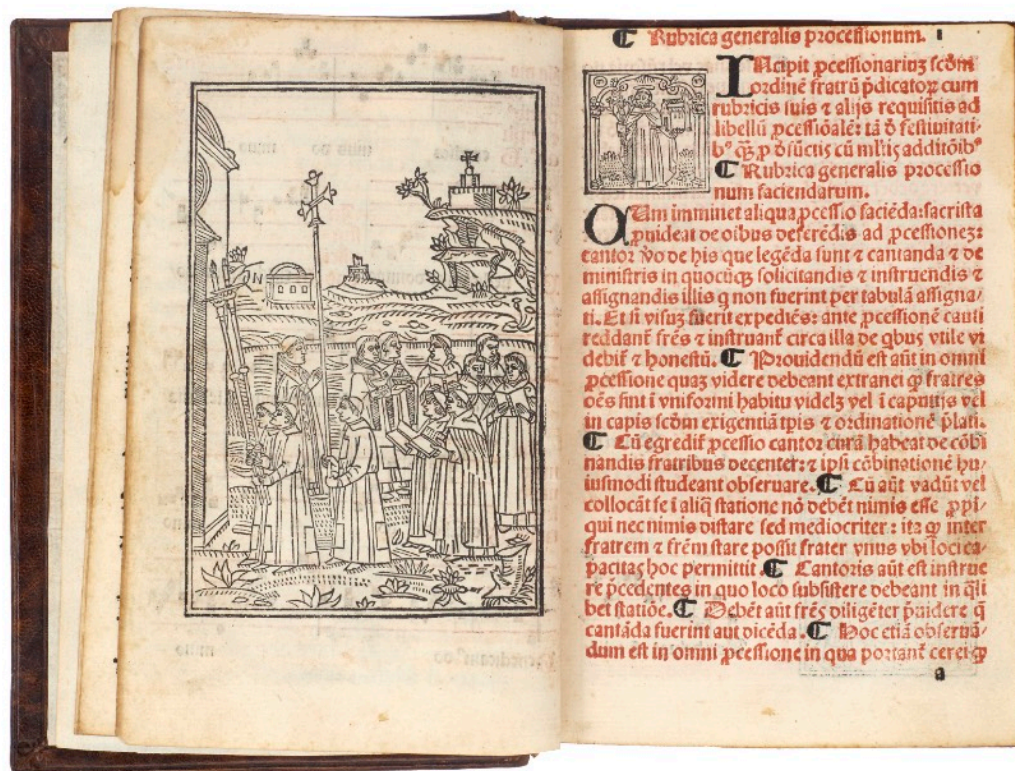 ¶ Rubrica generalis processionum. 1
INcipit ꝓcessionariuʒ scḋm
ordinē fratrū p̄dicatoꝝ cum
rubricis suis ⁊ alijs requisitis ad
libellū ꝓcessionalē: tā ḋ festiuitati-
bꝰ qꝫ ꝓ ḋfūctis cū ml'tis additōibꝰ
¶ Rubrica generalis processio
num faciendarum.
QUm imminet aliqua ꝓcessio faciēda: sacrista
ꝓuideat de oibus deferēdis ad ꝓcessioneʒ:
cantor ꝟo de his que legēda sunt ⁊ cantanda ⁊ de
ministris in quocūqꝫ solicitandis ⁊ instruendis ⁊
assignandis illis q̄ non fuerint per tabulā assigna-
ti. Et si visuʒ fuerit expediēs: ante ꝓcessionē cauti
reddant᷑ frēs ⁊ instruant᷑ circa illa de qbus vtile vi
debit᷑ ⁊ honestū. ¶ Prouidendū est aūt in omni
ꝓcessione quaʒ videre debeant extranei ꝙ fratres
oēs sint ī vniformi habitu videlʒ vel ī caputijs vel
in capis scḋm exigentiā tp̄is ⁊ ordinationē p̄lati.
¶ Cū egredit᷑ ꝓcessio cantor curā habeat de cōbi
nandis fratribus decenter: ⁊ ipsi cōbinationē hu-
iusmodi studeant obseruare. ¶ Cū aūt vadūt vel
collocāt se ī aliq̄ statione nō debēt nimis esse ꝓpi
qui nec nimis distare sed mediocriter: ita ꝙ inter
fratrem ⁊ frēm stare possit frater vnus vbi loci ca-
pacitas hoc permittit. ¶ Cantoris aūt est instrue
re p̄cedentes in quo loco subsistere debeant in q̄li
bet statiōe. ¶ Debēt aūt frēs diligēter p̄uidere q̄
cantāda fuerint aut dicēda. ¶ Hoc etiā obseruā-
dum est in omni ꝓcessione in qua portant᷑ cerei ꝙ
a